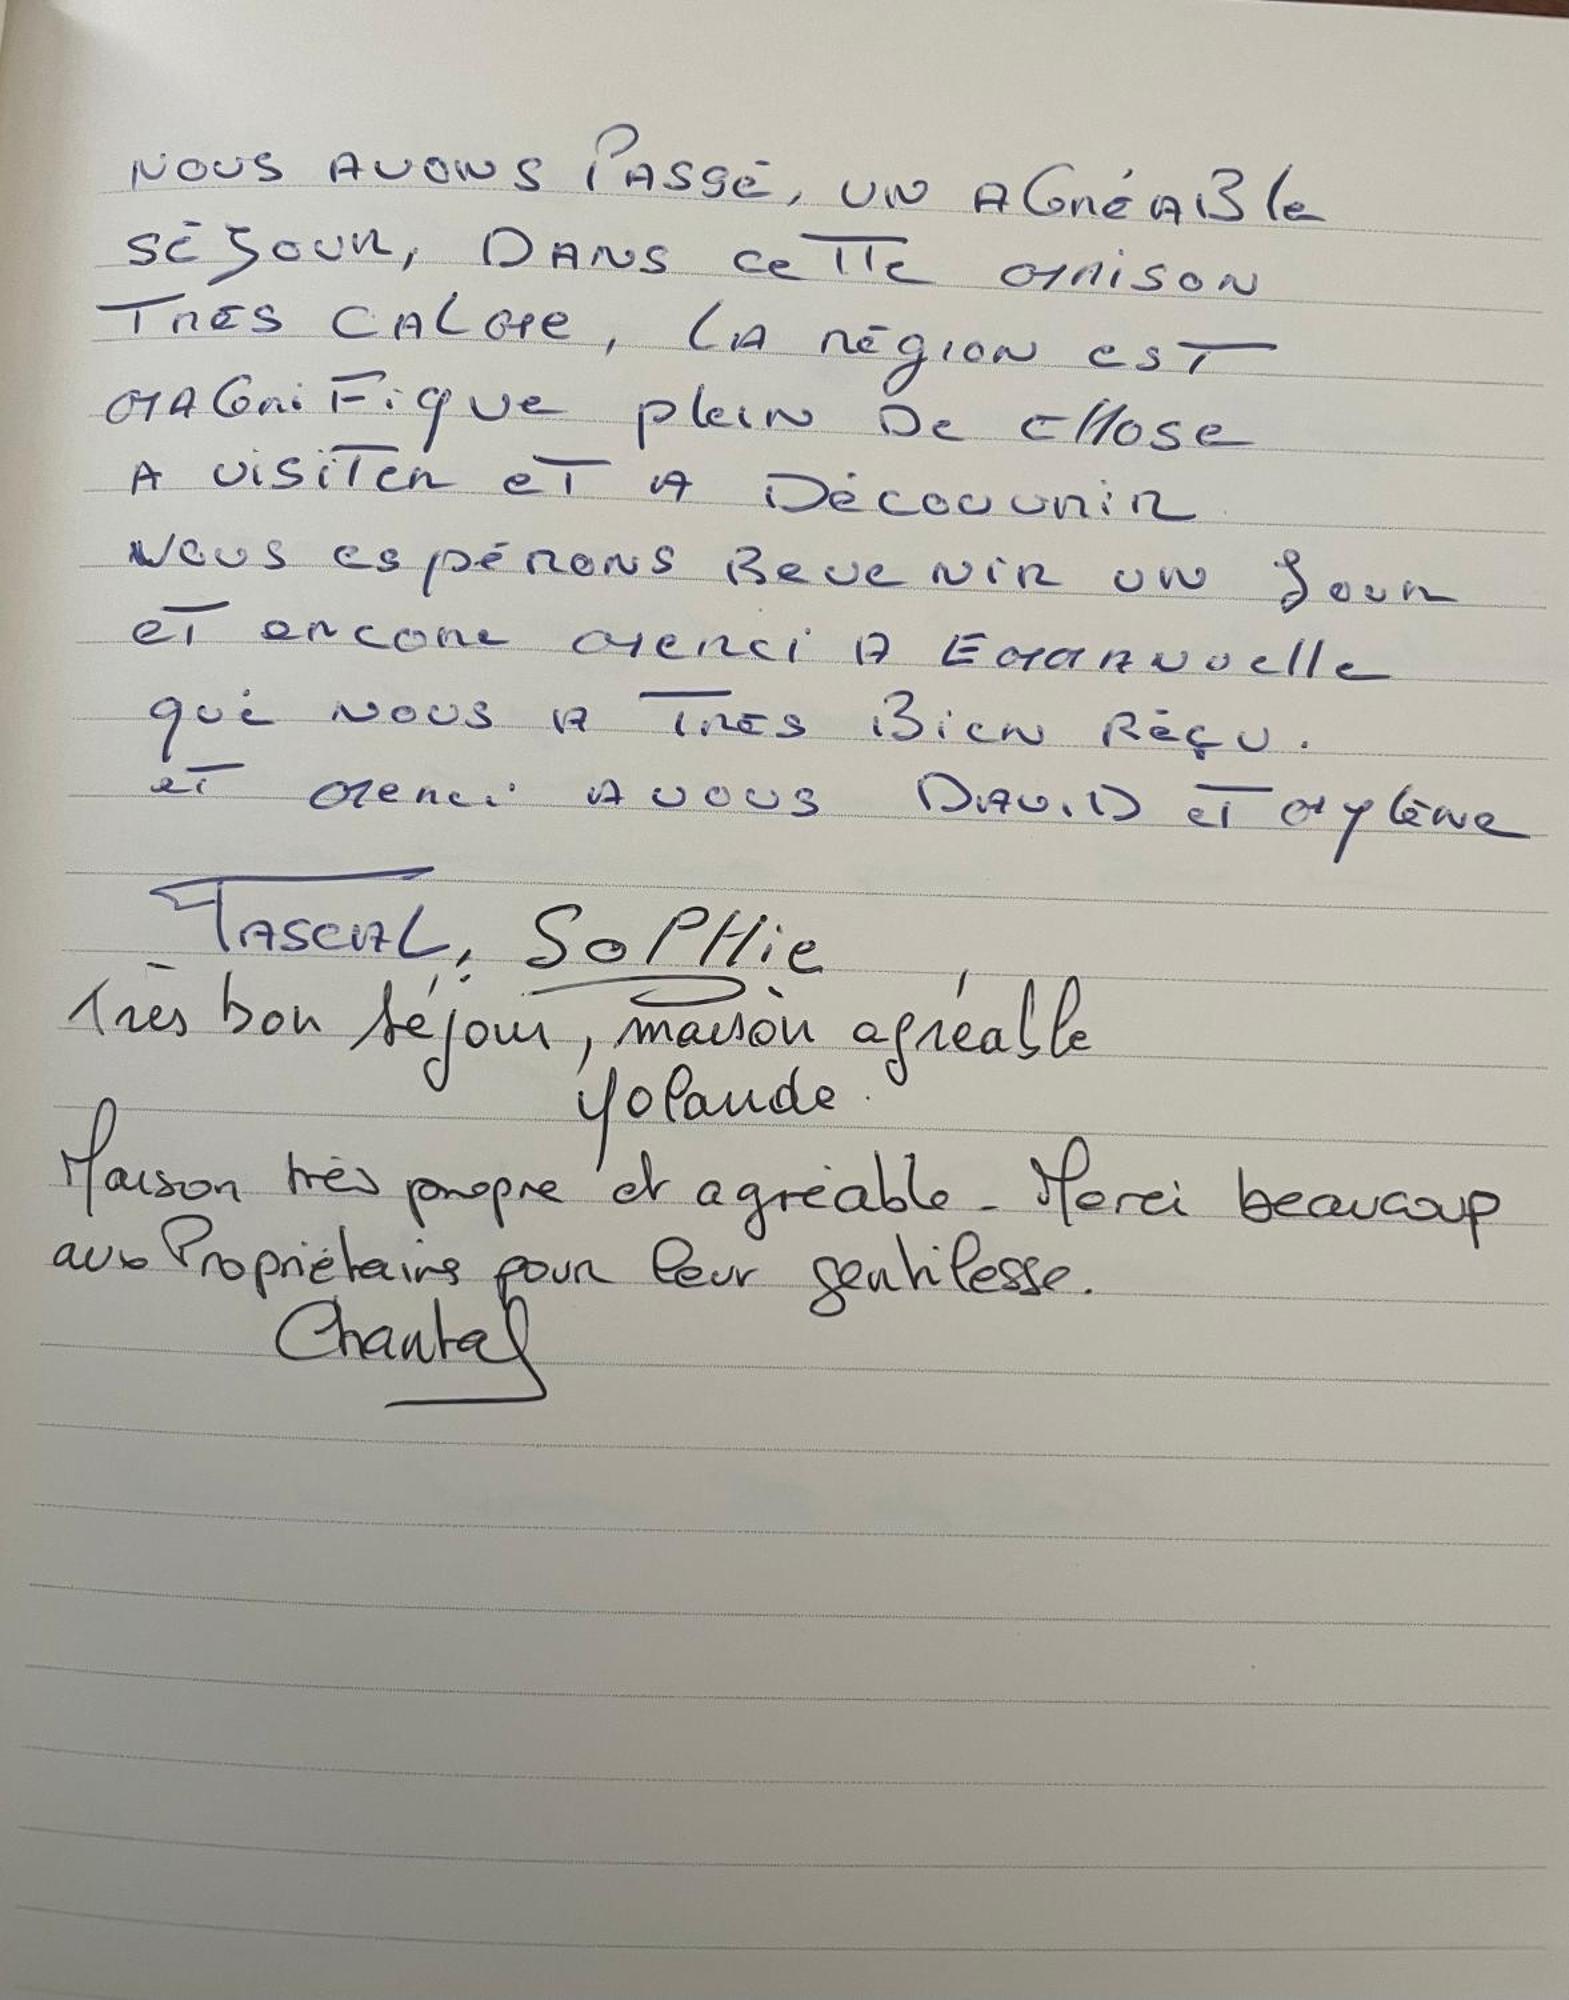 NOUS AVONS PASSé, UN AGréABle
SéJour, DANS ceTTe maison
Très CALme, LA région esT
mAGniFique plein De cHose
A visiTer eT A Découvrir
Nous espérons Revenir un Jour
eT encore merci A Emmanuelle
qui nous A Très Bien Réçu.
eT merci A vous DAviD eT mylène
PASCAL, SoPHie
Très bon séjour, maison agréable
Yolande.
Maison très propre et agréable. Merci beaucoup
aux Propriétaires pour leur gentilesse.
Chantal